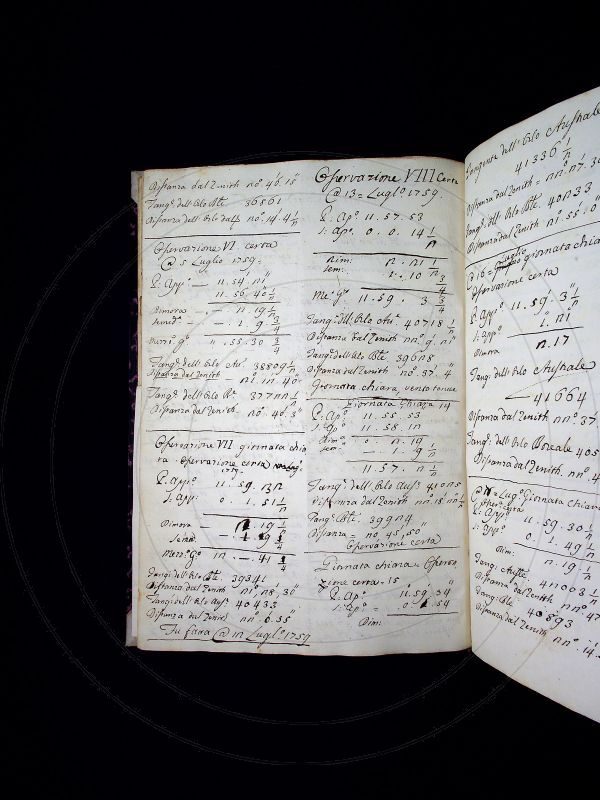 Distanza dal Zenith nº. 46'. 15"
Tangᵉ. dell'orlo Bᵉ. 36561
Distanza dell'orlo dal Z nº. 14'. 4½
Osservazione VI. certa
@ 5 Luglio 1759.
P: Appº — 11. 54. n1"
11. 56. 40½
Dimora — . — n. 19½
Semidʳ. — — . 1. 9¾
Merº. gº. "11. 55. 30¾
Tangᵉ. dell'orlo Auˡ. 38809½
Distanza dal Zenith n1. 1n. 40"
Tangᵉ. dell'orlo Bᵉ. 377nn½
Distanza dal Zenith nº. 40. 8"
Osservazione VII giornata chia
ra osservazione certa
1759.
P: Appº 11. 59. 3n
1: App: 0. 1. 51½
Dimora — . 19½
Merº: Gº 1n. — 41¼
Tangᵉ dell'orlo Bᵉ. 39341
Distanza del Zenith n1º. n8'. 30"
Tangᵉ dell'orlo Ausˡ. 40433
Distanza dal Zenith nnº. 6'. 55"
Fu fatta @ 1n Luglº 1759
Osservazione VIII Certa
@ 13 = Luglº 1759.
P: Apº 11. 57. 53
1: Apº. 0. 0. 14½
Dim: n. n1½
Sem: 1. 10¾
Meº gº. 11. 59. 3¾
Tangᵉ. dell'orlo Auˡ. 40718½
Distanza dal Zenith nnº. 9'. n"
Tangᵉ dell'orlo Bᵉ 396n8
Distanza dal Zenith nº. 37'. 4"
Giornata chiara, vento tenue
Giornata chiara 14
P: Apº 11. 55. 53
1: Apº 11. 58. 1n
Dimº: 0. n. 19
Sem: — . 1. 9½
11. 57. n½
Tangᵉ. dell'orlo Ausˡ. 410n5
Distanza dal Zenith nnº. 18'. nn½
Tangᵉ. Bᵉ: 399n4
Distanza = nº. 45'. 50"
Osservazione certa
Giornata chiara = Osserva
zione certa. 15
P: Apº 11. 59. 34"
1: Apº = 0. 1. 54
Dim:
Tangente dell'orlo Australe
41336½
Distanza dal Zenith = nnº n7'. 3
Tangᵉ. dell'orlo Bᵉ. 40n33
Distanza dal Zenith nº. 55'. 0"
@ 16 = Luglio giornata chiara
osservazione certa
P: Appº 11. 59'. 3½"
1: appº 1. n1
Dimora n. 17
Tangᵉ. dell'orlo Australe
41664
Distanza dal Zenith nnº. 37'.
Tangᵉ. dell'orlo Boreale 405
Distanza dal Zenith. nº. 4
Luglº Giornata chiara
certa
P: Appº 11. 59. 30½
1: appº 0. 1. 49½
Dim: n. 19½
Tangᵉ: Ausˡᵉ 4n003½
Distanza dal Zenith nnº. 47
Tangᵉ: Bᵉ 40893
Distanza dal Zenith nnº. 14'.